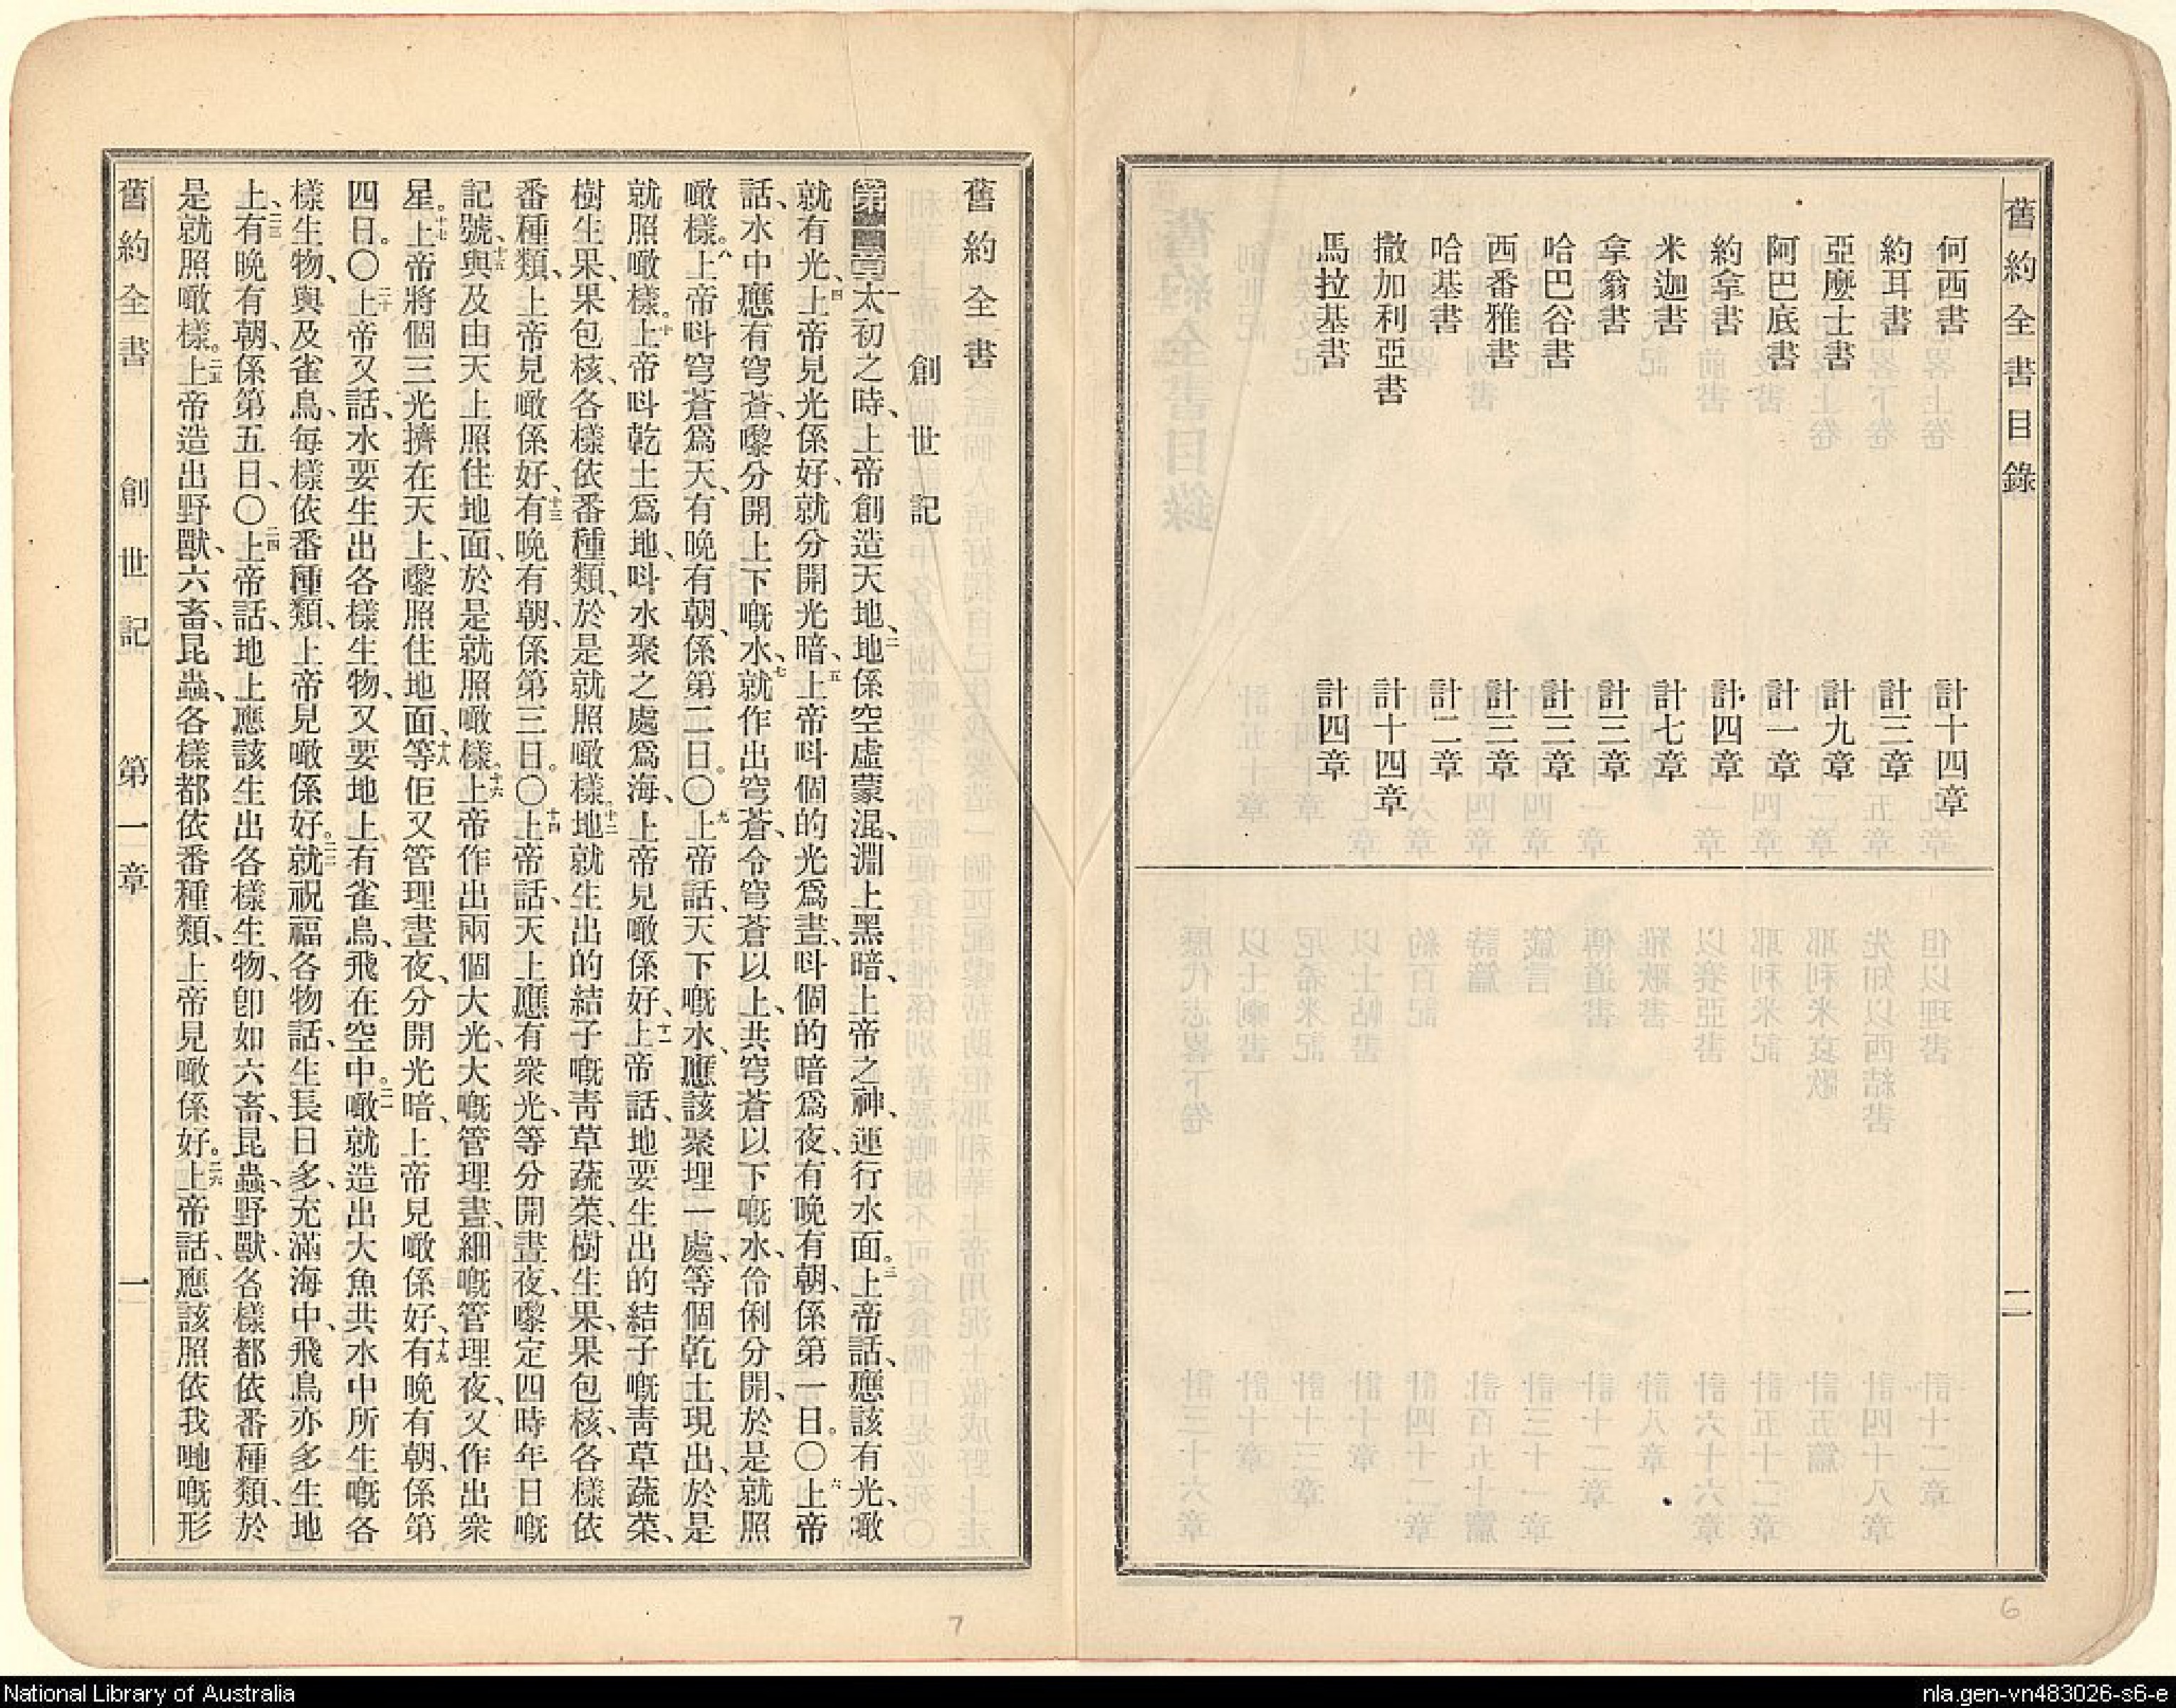 舊約全書目錄 二
何西書 計十四章
約耳書 計三章
亞麼士書 計九章
阿巴底書 計一章
約拿書 計四章
米迦書 計七章
拿翁書 計三章
哈巴谷書 計三章
西番雅書 計三章
哈基書 計二章
撒加利亞書 計十四章
馬拉基書 計四章
6
舊約全書
創世記
第一章 一太初之時、上帝創造天地、二地係空虛蒙混、淵上黑暗、上帝之神、運行水面。三上帝話、應該有光、噉
就有光、四上帝見光係好、就分開光暗、五上帝呌個的光爲晝、呌個的暗爲夜、有晚有朝、係第一日。〇六上帝
話、水中應有穹蒼、嚟分開上下嘅水、七就作出穹蒼、令穹蒼以上、共穹蒼以下嘅水、伶俐分開、於是就照
噉樣。八上帝呌穹蒼爲天、有晚有朝、係第二日。〇九上帝話、天下嘅水、應該聚埋一處、等個乾土現出、於是
就照噉樣。十上帝呌乾土爲地、呌水聚之處爲海、上帝見噉係好、十一上帝話、地要生出的結子嘅靑草蔬菜、
樹生果、果包核、各樣依番種類、於是就照噉樣。十二地就生出的結子嘅靑草蔬菜、樹生果、果包核、各樣依
番種類、上帝見噉係好、十三有晚有朝、係第三日。〇十四上帝話、天上應有衆光、等分開晝夜、嚟定四時年日嘅
記號、十五與及由天上照住地面、於是就照噉樣。十六上帝作出兩個大光、大嘅管理晝、細嘅管理夜、又作出衆
星。十七上帝將個三光擠在天上、嚟照住地面、十八等佢又管理晝夜、分開光暗、上帝見噉係好、十九有晚有朝、係第
四日。〇二十上帝又話、水要生出各樣生物、又要地上有雀鳥、飛在空中。二一噉就造出大魚共水中所生嘅各
樣生物、與及雀鳥、每樣依番種類、上帝見噉係好。二二就祝福各物話、生長日多、充滿海中、飛鳥亦多生地
上、二三有晚有朝、係第五日、〇二四上帝話、地上應該生出各樣生物、卽如六畜、昆蟲、野獸、各樣都依番種類、於
是就照噉樣。二五上帝造出野獸、六畜、昆蟲、各樣都依番種類、上帝見噉係好。二六上帝話、應該照依我哋嘅形
舊約全書 創世記 第一章 一
7
National Library of Australia
nla.gen-vn483026-s6-e